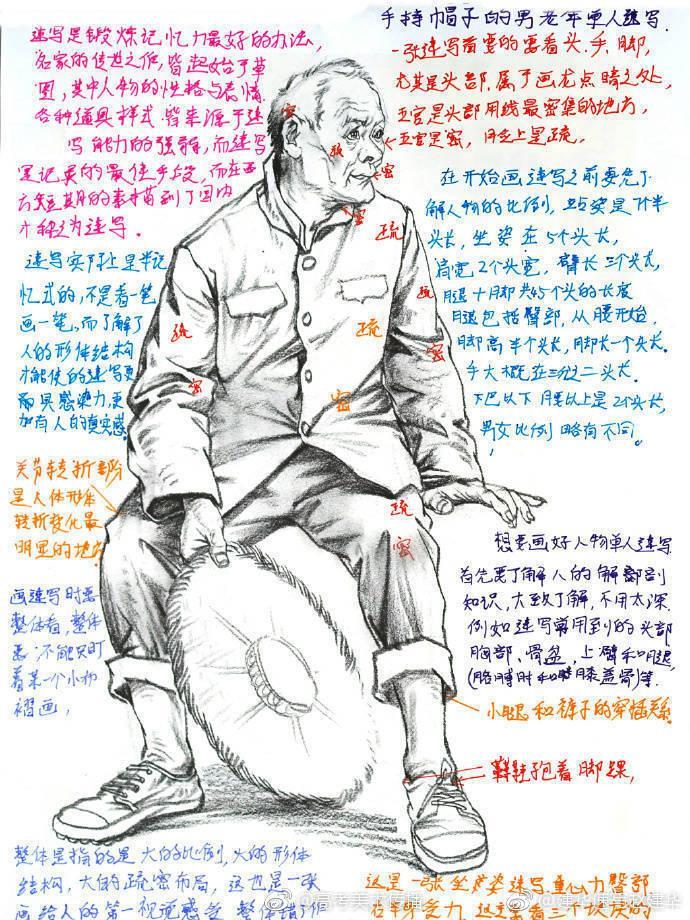 手持帽子的男老年单人速写.
速写是锻炼记忆力最好的办法,
名家的传世之作,皆起始于草
图,其中人物的性格与表情
各种道具样式皆来源于速
写能力的强弱,而速写
是记录的最佳手段,而在西
方
为速写.
一张速写首要的要看头.手.脚,
尤其是头部.属于画龙点睛之处,
五官是头部用线最密集的地方,
五官是密,
是疏.
密
疏
密
密
疏
疏
疏
疏
密
密
密
疏
密
在开始画速写之前要先了
解人物的比例,站姿是7个半
头长,坐姿在5个头长,
肩宽2个头宽,臂长三个头长,
腿十月却共4.5个头的长度
腿包括臀部,从腰开始,
脚高半个头长,脚长一个头长.
手大概在三分之二头长.
下巴以下腰以上是2个头长,
男女比例略有不同。
速写实际上是半记
忆式的,不是看一笔
画一笔.而了解了
人的形体结构
才能使的速写更
而具感染力,更
加有人的真实感.
关节转折部分
是人体形体
转折变化最
明显的地方
画速写时要
整体看,整体
画,不能只盯
着某一个小的
褶画,
想要画好人物单人速写
首先要了解人的解剖
知识,大致了解,不用太深.
例如速写常用到的头部
胸部、骨盆,上臂和小腿,
(胳膊肘和膝盖骨)等.
小腿和裤子的穿插关系
鞋包着脚踝,
整体是指的是大的比例,大的形体
结构,大的疏密布局,这也是一张
画给人的第一视觉感受
这是一张坐姿速写.重心力臀部.
@高考美术